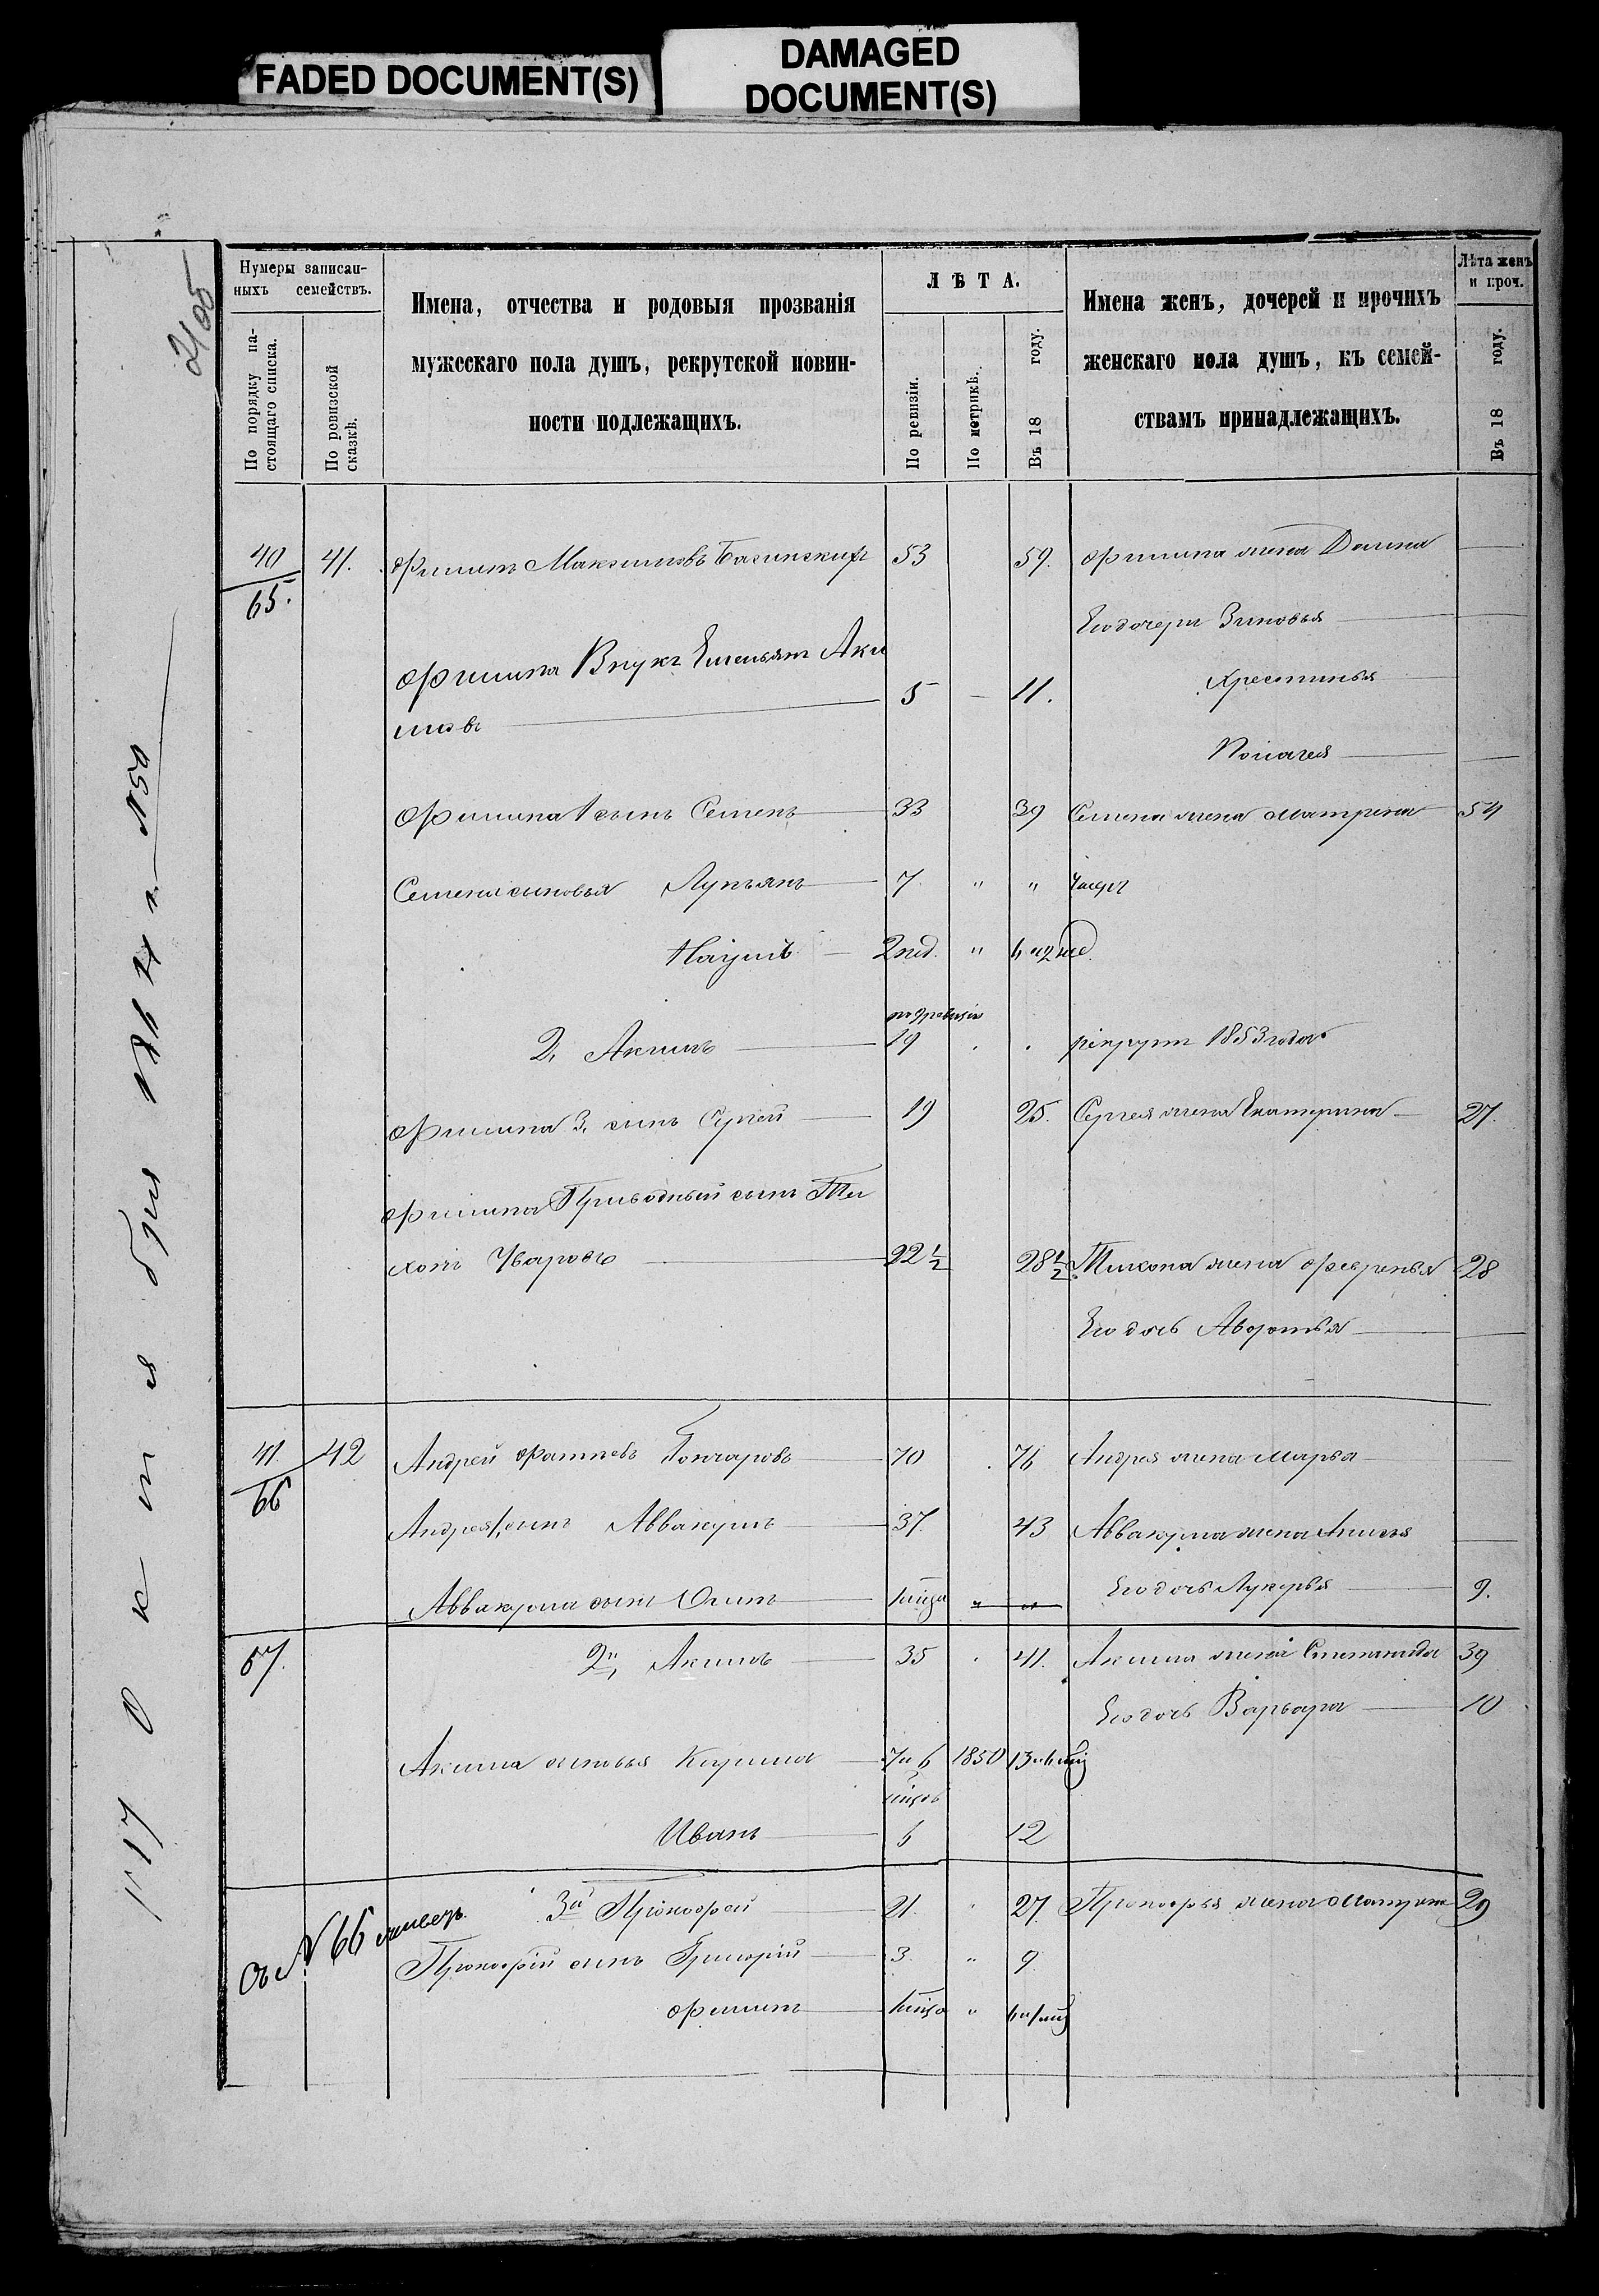 FADED DOCUMENT(S)
DAMAGED
DOCUMENT(S)
Нумеры записан-
ныхъ семействъ.
По порядку на-
стоящаго списка.
По ревизской
сказкѣ.
Имена, отчества и родовыя прозванія
мужескаго пола душъ, рекрутской повин-
ности подлежащихъ.
ЛѢТА.
По ревизіи.
По метрикѣ.
Въ 18 году.
Имена женъ, дочерей и прочихъ
женскаго пола душъ, къ семей-
ствамъ принадлежащихъ.
Лѣта женъ
и проч.
Въ 18 году.
40 41. Филипъ Максимовъ 53 59. Филипа жена Домна
65. Его дочери Зиновья
Филипа Внукъ Емельянъ Аки 5 11. Хрестинья
мовъ
Пелагея
Филипа 1 сынъ Семенъ 33 39 Семена жена Матрена 54
Семена сыновья Лукьянъ 7 " "
Наумъ 2 нед. "
2, Акимъ 19 рекрутъ 1853 года
Филипа 3, сынъ Сергей 19 25. Сергея жена Екатерина 27.
Филипа Приводный сынъ Ти
хонъ Уваровъ 22 1/2 28 1/2 Тихона жена Февронья 28
Его дочь Авдотья
41. 42 Андрей Фатеевъ Гончаровъ 70 76 Андрея жена Марья
66 Андрея 1, сынъ Аввакумъ 37. 43 Аввакума жена Анисья
Аввакума сынъ Осипъ " Его дочь Лукерья 9.
67. 2й, Акимъ 35 41. Акима жена Степанида 39
Его дочь Варвара 10
Акима сыновья Кирила 7 и 6 1850
Иванъ 6 12
3й Прокофей 21. 27. Прокофья жена Матрена 29
съ № 66
Прокофій сынъ Григорій 3. " 9
Филипъ "
17 Октября